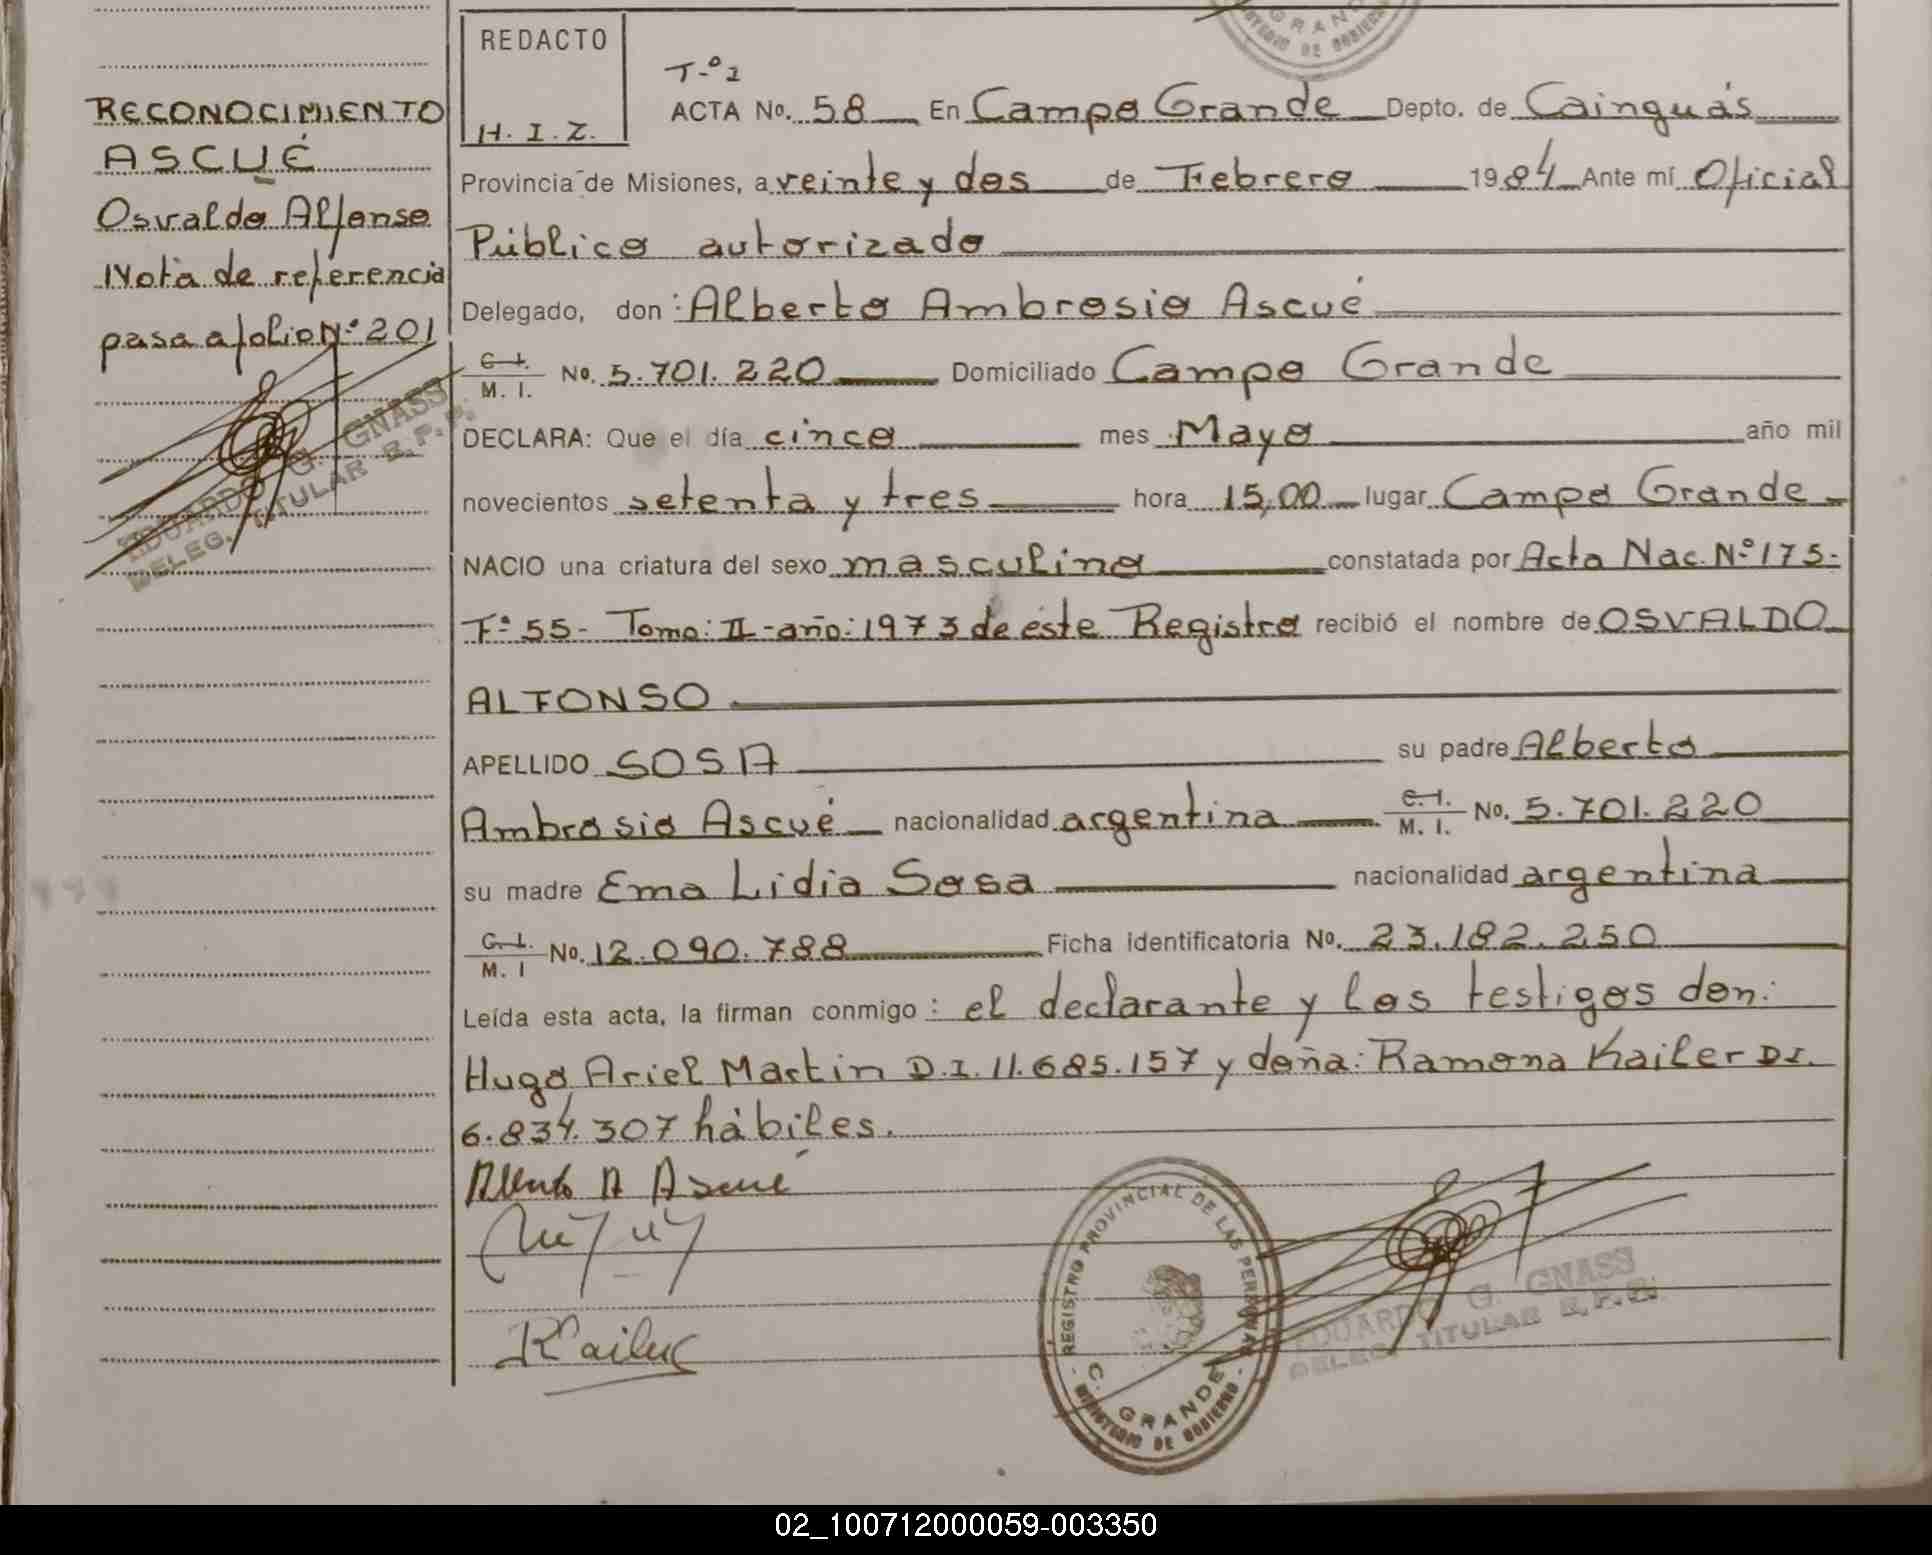 RECONOCIMIENTO
ASCUÉ
Osvaldo Alfonso
Nota de referencia
pasa a folio Nº 201
EDUARDO G. GNASS
DELEG. TITULAR R.P.P.
GRANDE
MINISTERIO DE GOBIERNO
REDACTO
H. I. Z.
T-º 1
ACTA No. 58 En Campo Grande Depto. de Cainguás
Provincia de Misiones, a veinte y dos de Febrero 1984 Ante mí Oficial
Público autorizado
Delegado, don: Alberto Ambrosio Ascué
C.I. M. I. No. 5.701.220 Domiciliado Campo Grande
DECLARA: Que el día cinco mes Mayo año mil
novecientos setenta y tres hora 15,00 lugar Campo Grande
NACIO una criatura del sexo masculino constatada por Acta Nac. Nº 175-
Fº 55- Tomo: II - año: 1973 de éste Registro recibió el nombre de OSVALDO
ALFONSO
APELLIDO SOSA su padre Alberto
Ambrosio Ascué nacionalidad argentina C.I. M. I. No. 5.701.220
su madre Ema Lidia Sosa nacionalidad argentina
C.I. M. I No. 12.090.788 Ficha identificatoria No. 23.182.250
Leída esta acta, la firman conmigo: el declarante y los testigos don:
Hugo Ariel Martin D.I. 11.685.157 y doña: Ramona Kailer D.I.
6.834.307 hábiles.
Alberto A Ascué
RKailer
REGISTRO PROVINCIAL DE LAS PERSONAS
C. GRANDE
MINISTERIO DE GOBIERNO
EDUARDO G. GNASS
DELEG. TITULAR R.P.P.
02_100712000059-003350